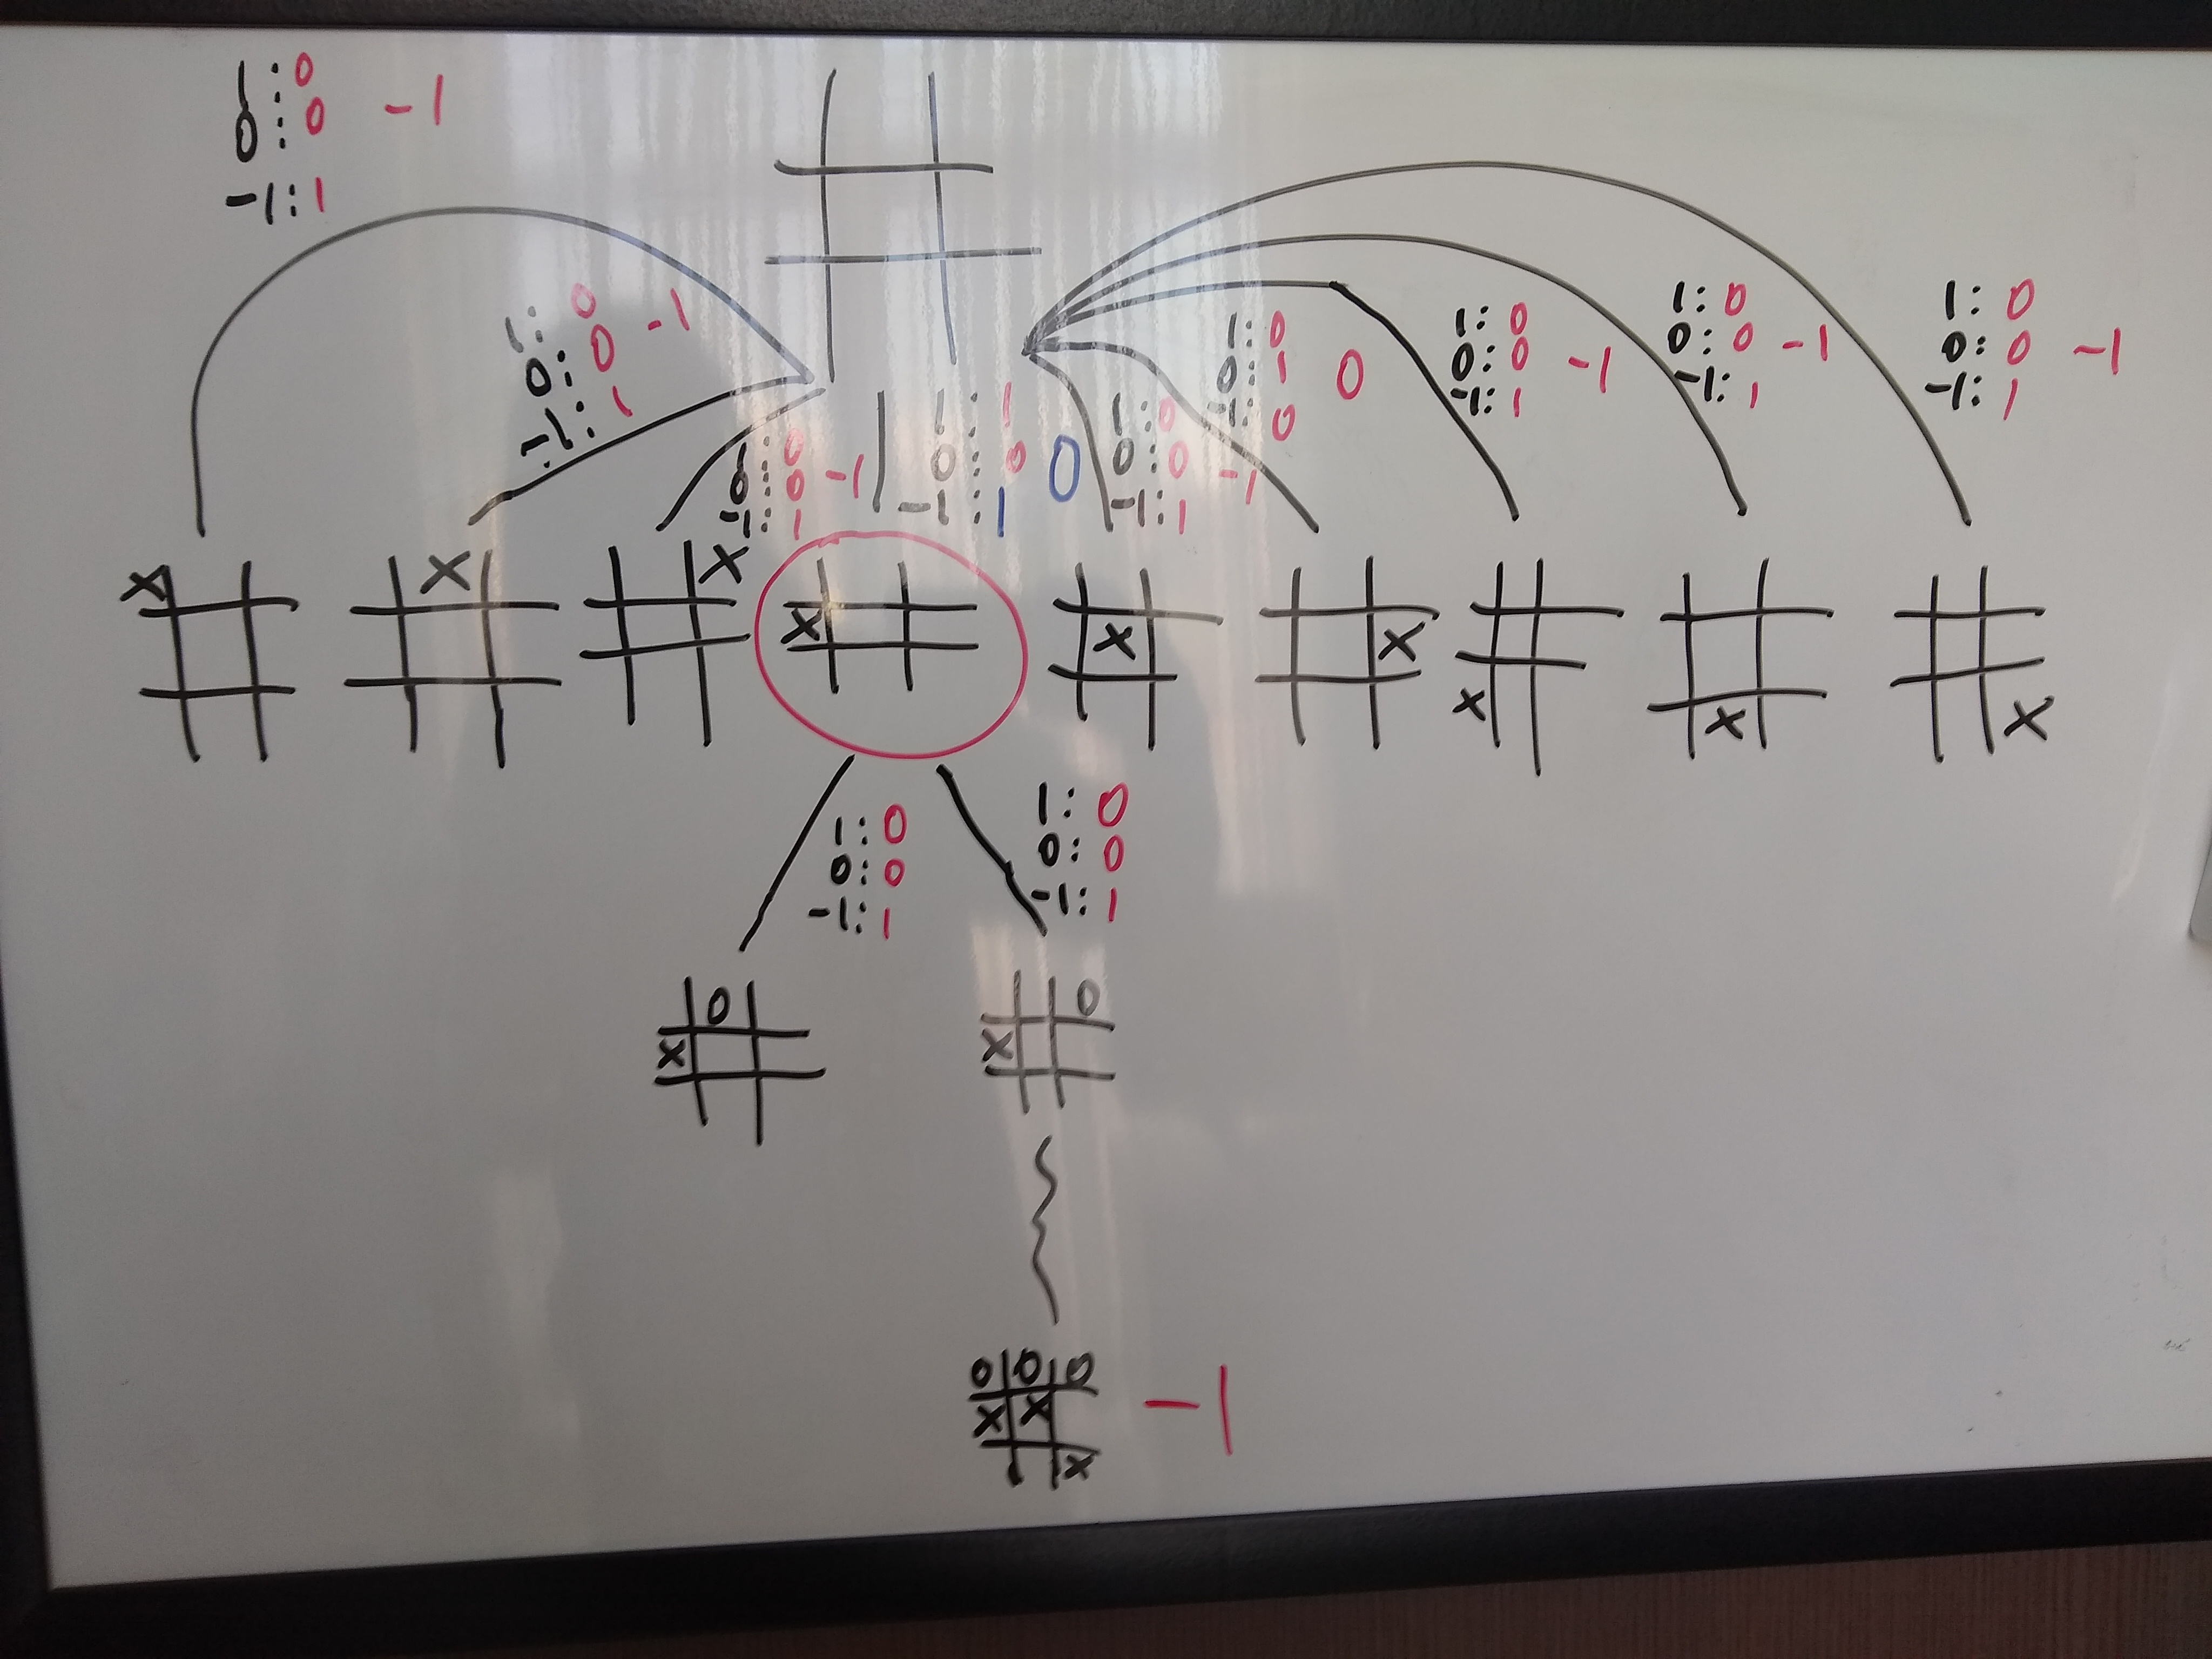 1:0
0:0 -1
-1:1
1:0
0:0 -1
-1:1
0:0 -1
-1:1
1:1
0:0 0
-1:1
1:0
0:0 -1
-1:1
1:0
0:1 0
-1:0
1:0
0:0 -1
-1:1
1:0
0:0 -1
-1:1
1:0
0:0 -1
-1:1
X
X
X
X
X
X
X
X
X
1:0
0:0
-1:1
1:0
0:0
-1:1
0
X
0
X
0 0 0
X X -1
X